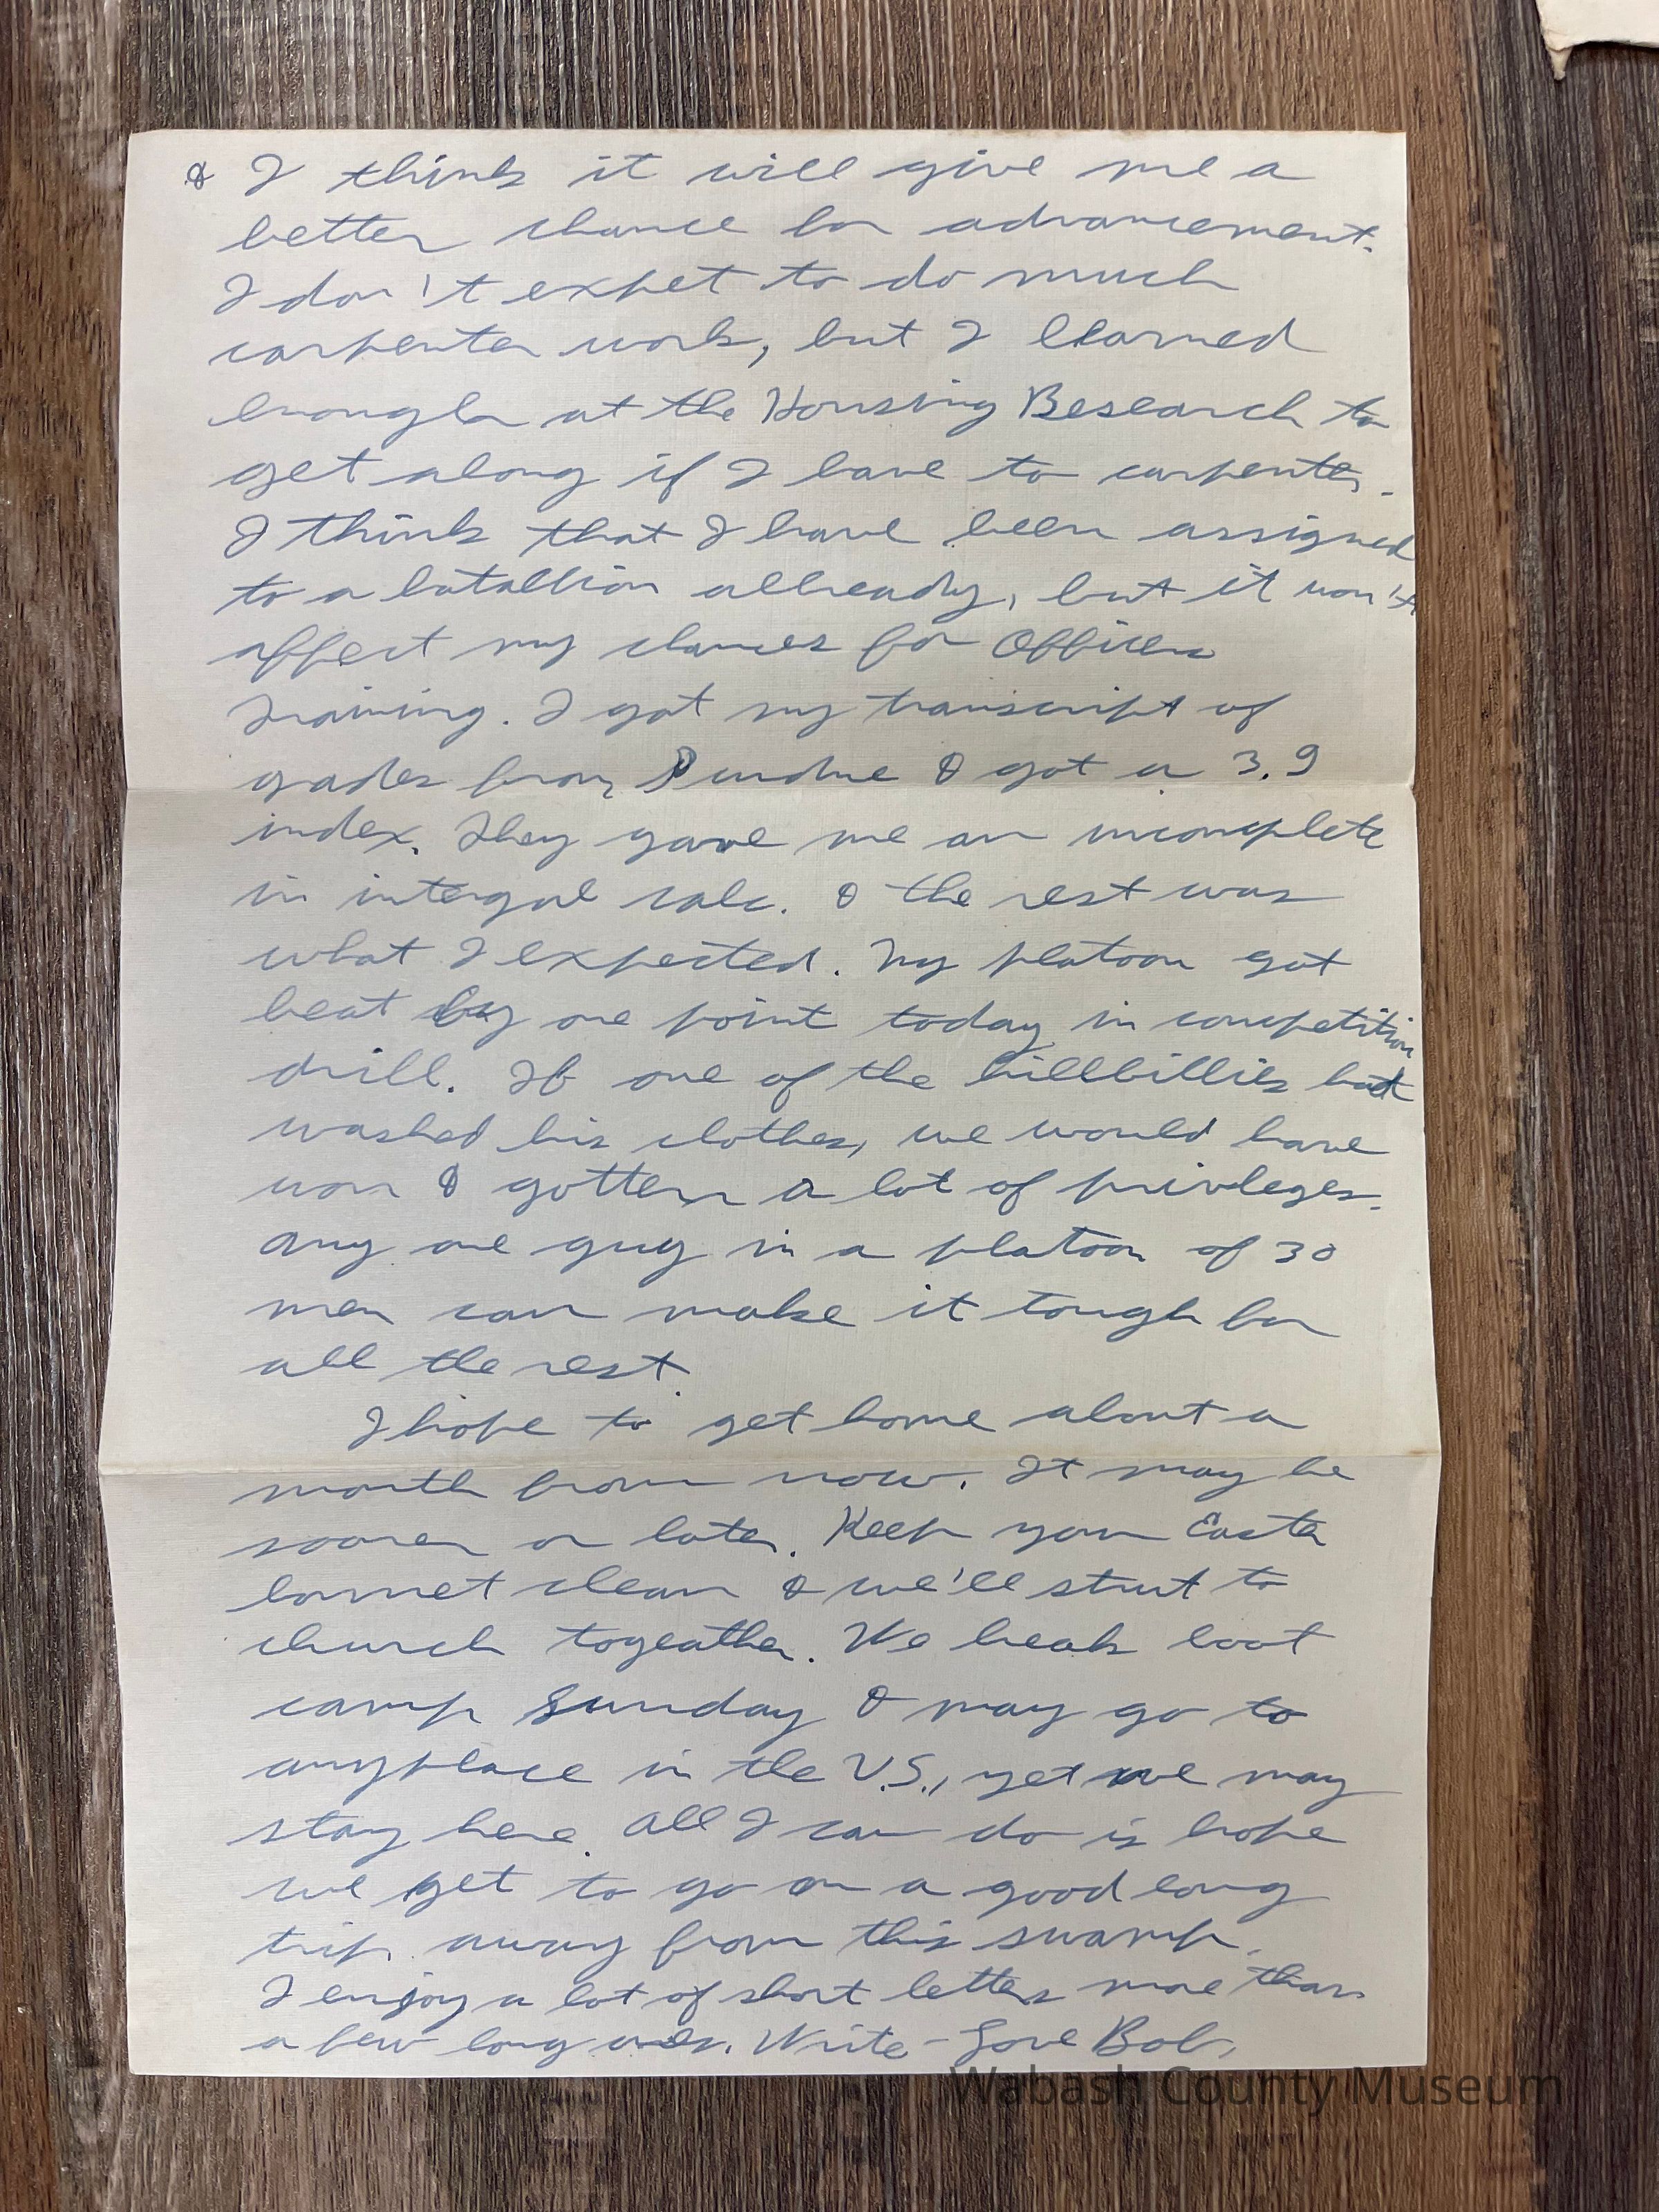 & I think it will give me a
better chance for advancement.
I don't expet to do much
carpenter work, but I learned
enough at the Housing Research to
get along if I have to carpenter.
I think that I have been assigned
to a batallion allready, but it won't
affect my chances for Officers
Training. I got my transcript of
grades from Purdue & got a 3.9
index. They gave me an incomplete
in intergal calc. & the rest was
what I expected. My platoon got
beat by one point today in competition
drill. If one of the hillbillies had
washed his clothes, we would have
won & gotten a lot of privleges.
Any one guy in a platoon of 30
men can make it tough for
all the rest.
I hope to get home about a
month from now. It may be
sooner or later. Keep your Easter
bonnet clean & we'll strut to
church togeather. We break boot
camp Sunday & may go to
anyplace in the U.S., yet we may
stay here. All I can do is hope
we get to go on a good long
trip away from this swamp.
I enjoy a lot of short letters more than
a few long ones. Write - Love Bob,
Wabash County Museum